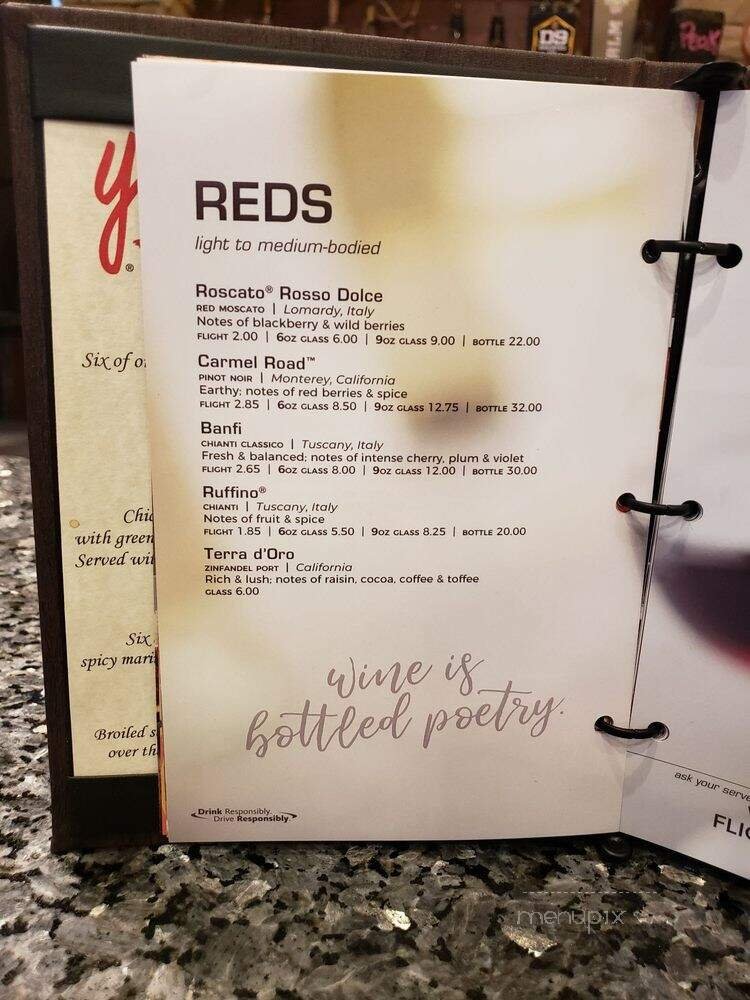 D9
REDS
light to medium-bodied
Roscato® Rosso Dolce
RED MOSCATO | Lomardy, Italy
Notes of blackberry & wild berries
FLIGHT 2.00 | 6OZ GLASS 6.00 | 9OZ GLASS 9.00 | BOTTLE 22.00
Carmel Road™
PINOT NOIR | Monterey, California
Earthy; notes of red berries & spice
FLIGHT 2.85 | 6OZ GLASS 8.50 | 9OZ GLASS 12.75 | BOTTLE 32.00
Banfi
CHIANTI CLASSICO | Tuscany, Italy
Fresh & balanced; notes of intense cherry, plum & violet
FLIGHT 2.65 | 6OZ GLASS 8.00 | 9OZ GLASS 12.00 | BOTTLE 30.00
Ruffino®
CHIANTI | Tuscany, Italy
Notes of fruit & spice
FLIGHT 1.85 | 6OZ GLASS 5.50 | 9OZ GLASS 8.25 | BOTTLE 20.00
Terra d'Oro
ZINFANDEL PORT | California
Rich & lush; notes of raisin, cocoa, coffee & toffee
GLASS 6.00
wine is
bottled poetry.
Drink Responsibly.
Drive Responsibly.
Six of
with green
Served
Six
spicy
Broiled
over
ask your
menupix